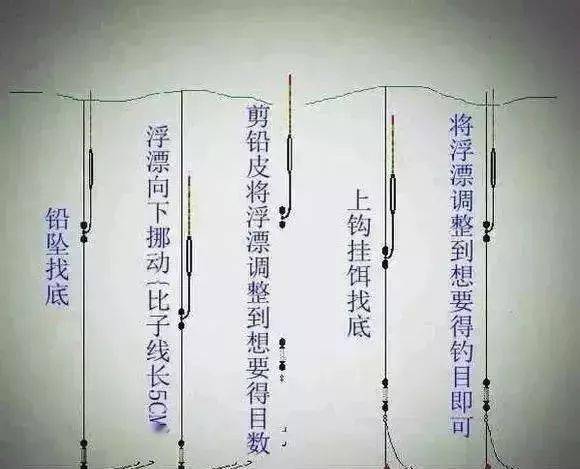 铅坠找底
浮漂向下挪动(比子线长5CM
剪铅皮将浮漂调整到想要得目数
上钩挂饵找底
将浮漂调整到想要得钓目即可